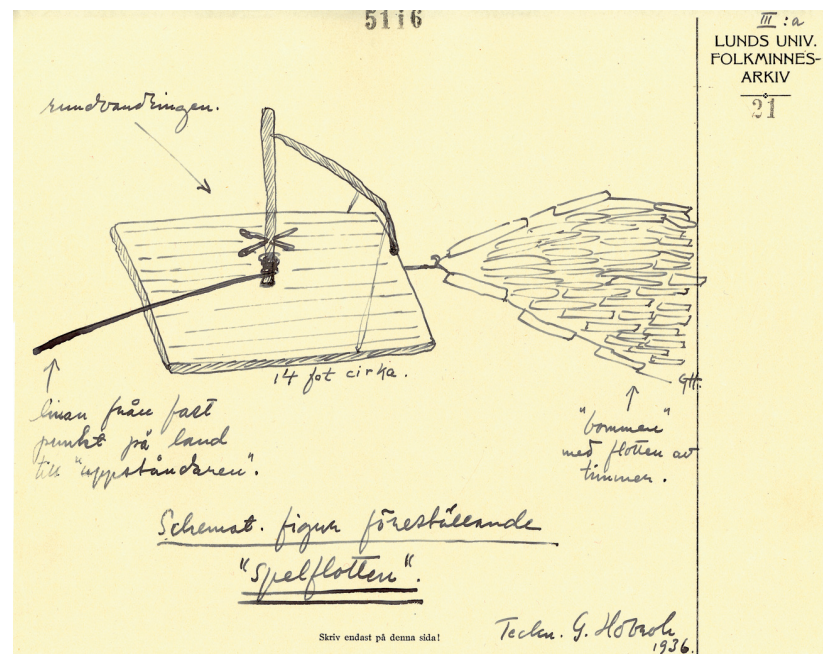 5116
III:a
LUNDS UNIV.
FOLKMINNES-
ARKIV
21
rundvandringen.
14 fot cirka.
GH.
linan från fast
punkt på land
till "uppståndaren".
"bommen"
med flotten av
timmer.
Schemat. figur föreställande
"Spelflotten".
Skriv endast på denna sida!
Teckn. G.
1936.